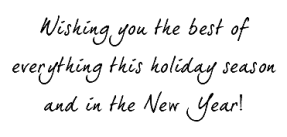 Wishing you the best of
everything this holiday season
and in the New Year!